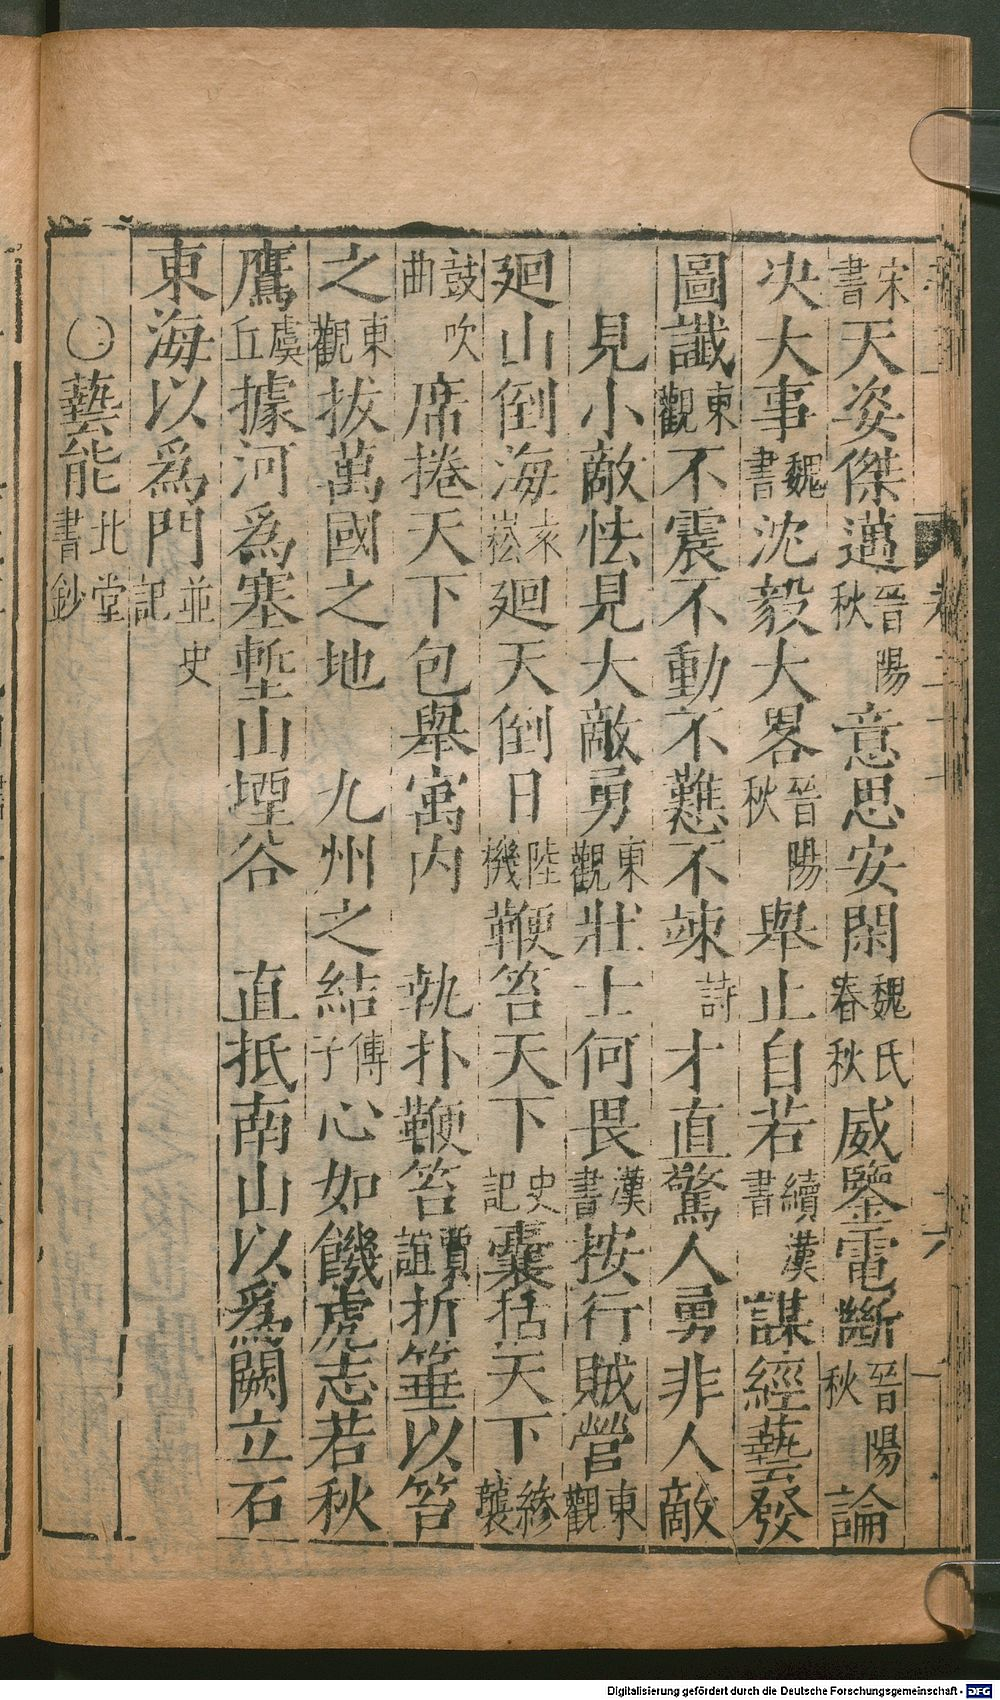 宋書天姿傑邁晉陽秋意思安閑魏氏春秋威鑒電斷晉陽秋論
决大事魏書沈毅大畧晉陽秋舉止自若續漢書謀經藝發
圖讖東觀不震不動不戁不竦詩才直驚人勇非人敵
見小敵怯見大敵勇東觀壯士何畏漢書按行賊營東觀
廻山倒海崧廻天倒日陸機鞭笞天下史記囊括天下繆襲
鼓吹曲席捲天下包舉寓内執扑鞭笞賈誼折箠以笞
之東觀拔萬國之地九州之結傅子心如饑虎志若秋
鷹虞丘據河爲塞塹山堙谷直抵南山以爲闕立石
東海以爲門並史記
〇藝能北堂書鈔
Digitalisierung gefördert durch die Deutsche Forschungsgemeinschaft - DFG